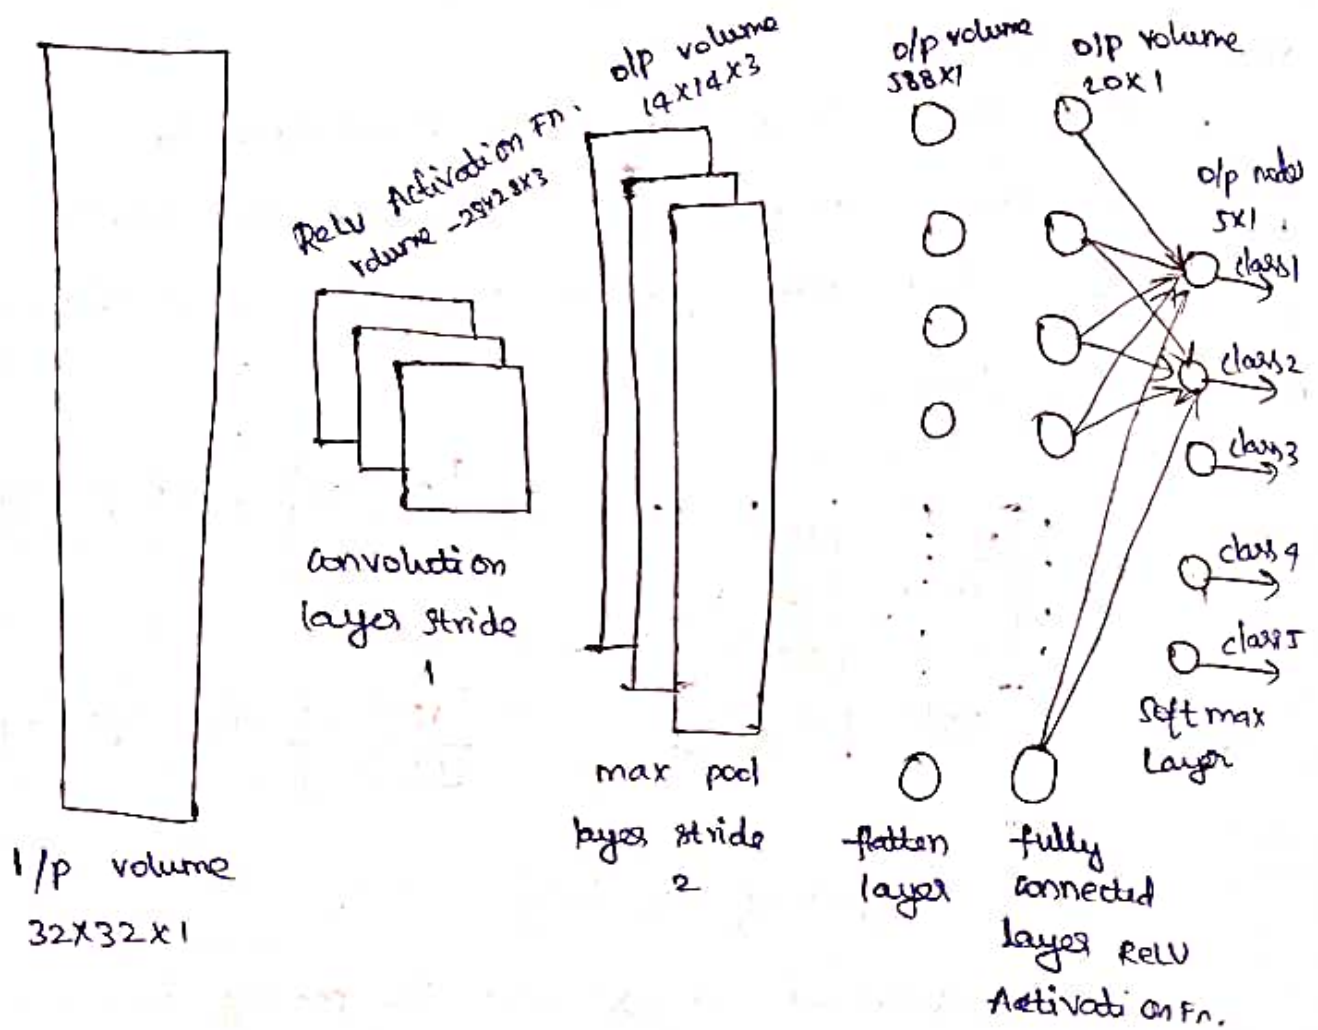 I/p volume
32X32X1
ReLU Activation Fn.
volume -28x28x3
convolution
layer stride
1
o/p volume
14X14X3
max pool
layer stride
2
o/p volume
588X1
flatten
layer
o/p volume
20X1
fully
connected
layer ReLU
Activation Fn.
o/p nodes
5X1
class1
class2
class3
class4
class5
Softmax
Layer